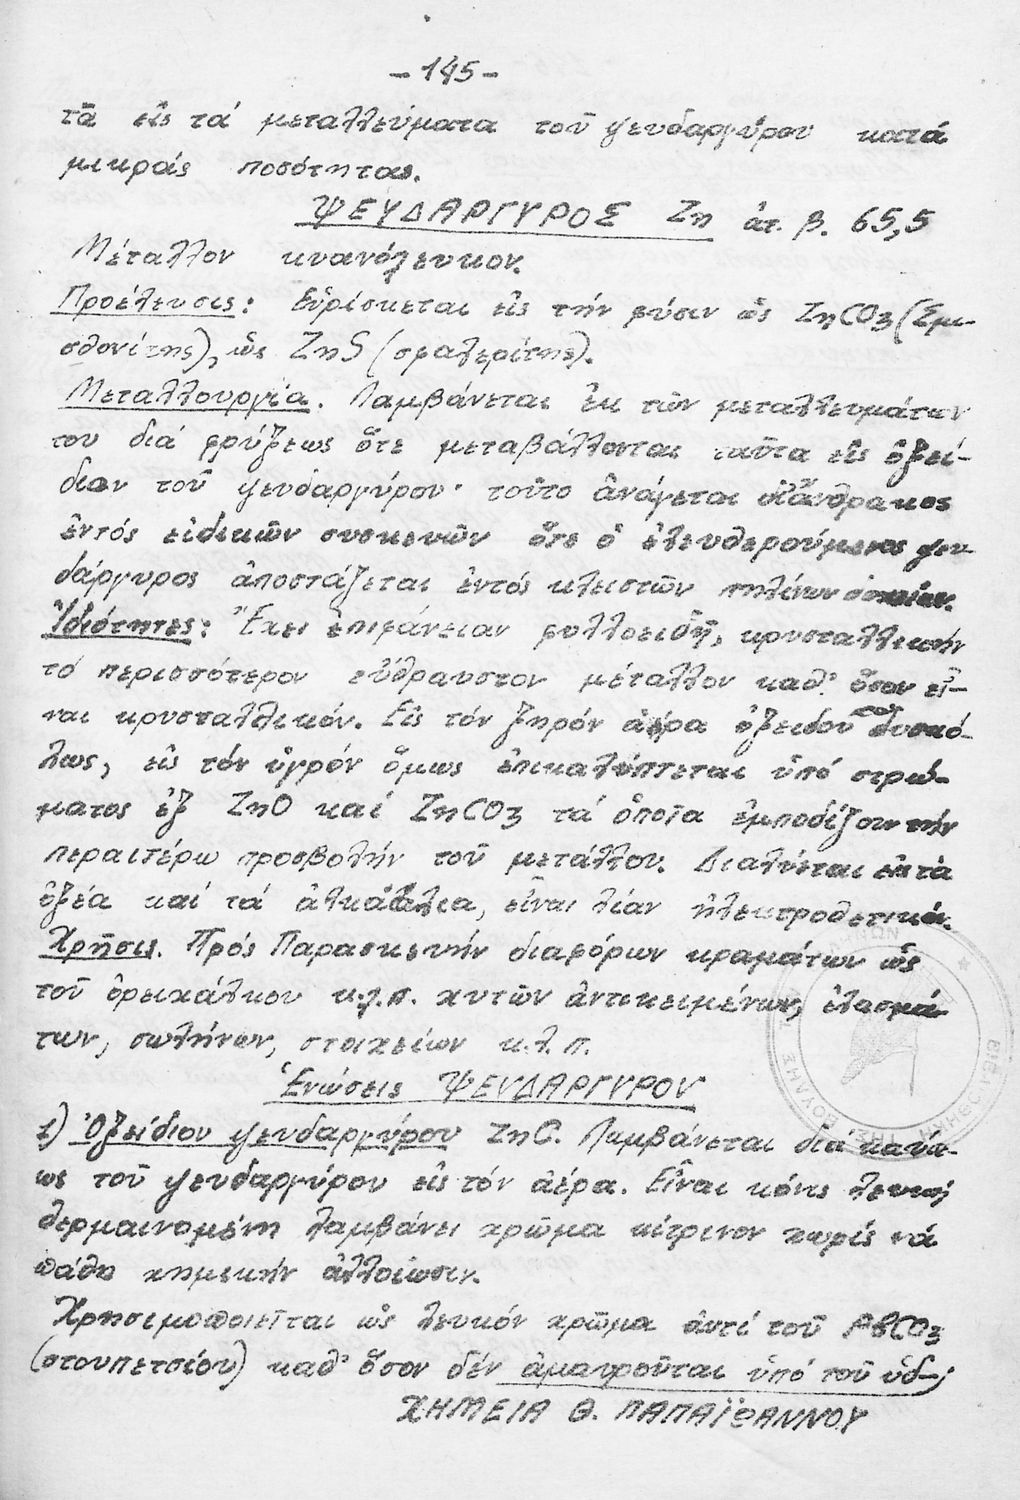 - 145 -
τα εἰς τά μεταλλεύματα τοῦ ψευδαργύρου κατά
μικράς ποσότητας.
ΨΕΥΔΑΡΓΥΡΟΣ Zn ἀτ. β. 65,5
Μέταλλον κυανόλευκον.
Προέλευσις: Εὑρίσκεται εἰς τήν φύσιν ὡς ZnCO3 (Σμι-
σθονίτης), ὡς ZnS (σφαλερίτης).
Μεταλλουργία. Λαμβάνεται ἐκ τῶν μεταλλευμάτων
του διά φρύξεως ὅτε μεταβάλλονται ταῦτα εἰς ὀξεί-
διον τοῦ ψευδαργύρου· τοῦτο ἀνάγεται δι' ἄνθρακος
ἐντός εἰδικῶν συσκευῶν ὅτε ὁ ἐλευθερούμενος ψευ-
δάργυρος ἀποστάζεται ἐντός κλειστῶν πηλίνων
Ἰδιότητες: Ἔχει ἐπιφάνειαν φυλλοειδῆ, κρυσταλλικήν
τό περισσότερον εὔθραυστον μέταλλον καθ' ὅσον εἶ-
ναι κρυσταλλικόν. Εἰς τόν ξηρόν ἀέρα ὀξειδοῦται δυσκό-
λως, εἰς τόν ὑγρόν ὅμως ἐπικαλύπτεται ὑπό στρώ-
ματος ἐξ ZnO καί ZnCO3 τά ὁποῖα ἐμποδίζουν τήν
περαιτέρω προσβολήν τοῦ μετάλλου. Διαλύεται εἰς τά
ὀξέα καί τά ἀλκάλια, εἶναι λίαν ἠλεκτροθετικόν.
Χρῆσις. Πρός Παρασκευήν διαφόρων κραμάτων ὡς
τοῦ ὀρειχάλκου κ.λ.π. χυτῶν ἀντικειμένων, ἐλασμά-
των, σωλήνων, στοιχείων κ.λ.π.
Ἑνώσεις ΨΕΥΔΑΡΓΥΡΟΥ
1) Ὀξείδιον ψευδαργύρου ZnO. Λαμβάνεται διά καύσε-
ως τοῦ ψευδαργύρου εἰς τόν ἀέρα. Εἶναι κόνις λευκή
θερμαινομένη λαμβάνει χρῶμα κίτρινον χωρίς νά
πάθῃ χημικήν ἀλλοίωσιν.
Χρησιμοποιεῖται ὡς λευκόν χρῶμα ἀντί τοῦ PbCO3
(στουπετσίου) καθ' ὅσον δέν ἀμαυροῦται ὑπό τοῦ ὑδ-
ΧΗΜΕΙΑ Θ. ΠΑΠΑΪΩΑΝΝΟΥ